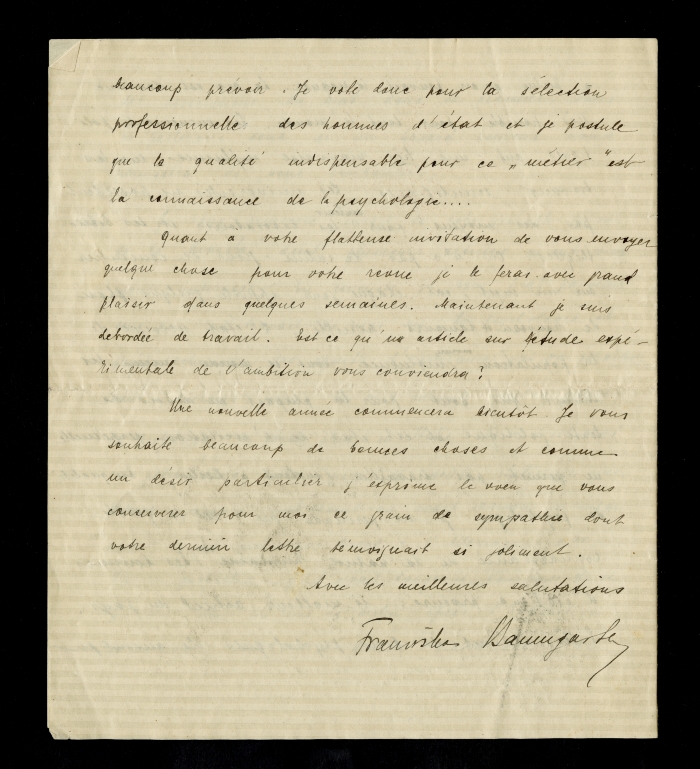 beaucoup prévoir. Je vote donc pour la sélection
professionnelle des hommes d'état et je postule
que la qualité indispensable pour ce „métier" est
la connaissance de la psychologie....
Quant a votre flatteuse invitation de vous envoyer
quelque chose pour votre revue je le ferai avec grand
plaisir dans quelques semaines. Maintenant je suis
debordée de travail. Est ce qu'un article sur l'étude expé-
rimentale de l'ambition vous conviendra?
Une nouvelle année commencera bientôt. Je vous
souhaite beaucoup de bonnes choses et comme
un désir particulier j'exprime le voeu que vous
conserverez pour moi ce grain de sympathie dont
votre dernière lettre témoignait si joliment.
Avec les meilleures salutations
Franziska Baumgarten